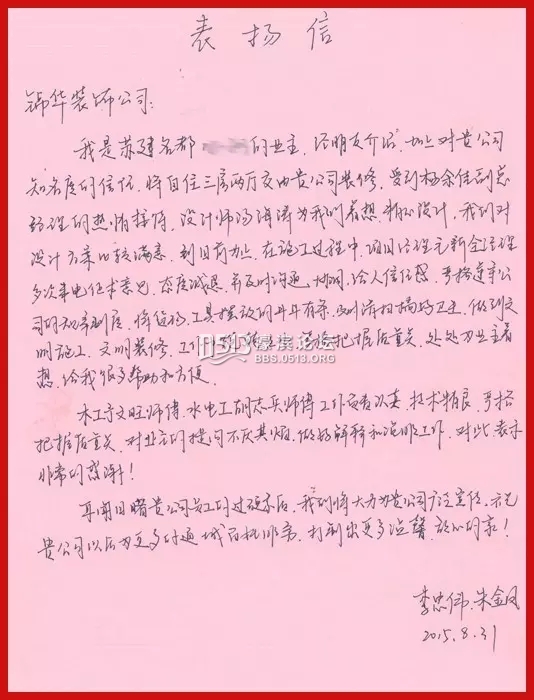 表扬信
锦华装饰公司:
我是苏建名都 的业主,经朋友介绍,加上对贵公司
知名度的信任,将自住三房两厅交由贵公司装修,受到杨余佳副总
经理的热情接待,设计师汤海涛为我们着想,精心设计,我们对
设计方案比较满意,到目前为止,在施工过程中,项目经理元新全经理
多次来电征求意见,态度诚恳,并及时沟通,协调,给人信任感,严格遵章公
司的规章制度,将货物,工具摆放的井井有条,及时清扫搞好卫生,做到文
明施工,文明装修,工 严格把握质量关,处处为业主着
想,给我很多帮助和方便。
木工 文旺师傅,水电工胡志兵师傅工作负责认真,技术精良,严格
把握质量关,对业主的提问不厌其烦,做好解释和说明工作,对此表示
非常的感谢!
耳闻目睹贵公司员工的过硬素质,我们将大力为贵公司广泛宣传,祝
贵公司以后为更多的通城百姓 ,打制出更多温馨,放心的家!
李忠伟、朱金凤
2015.8.31
0513 濠滨论坛
BBS.0513.ORG